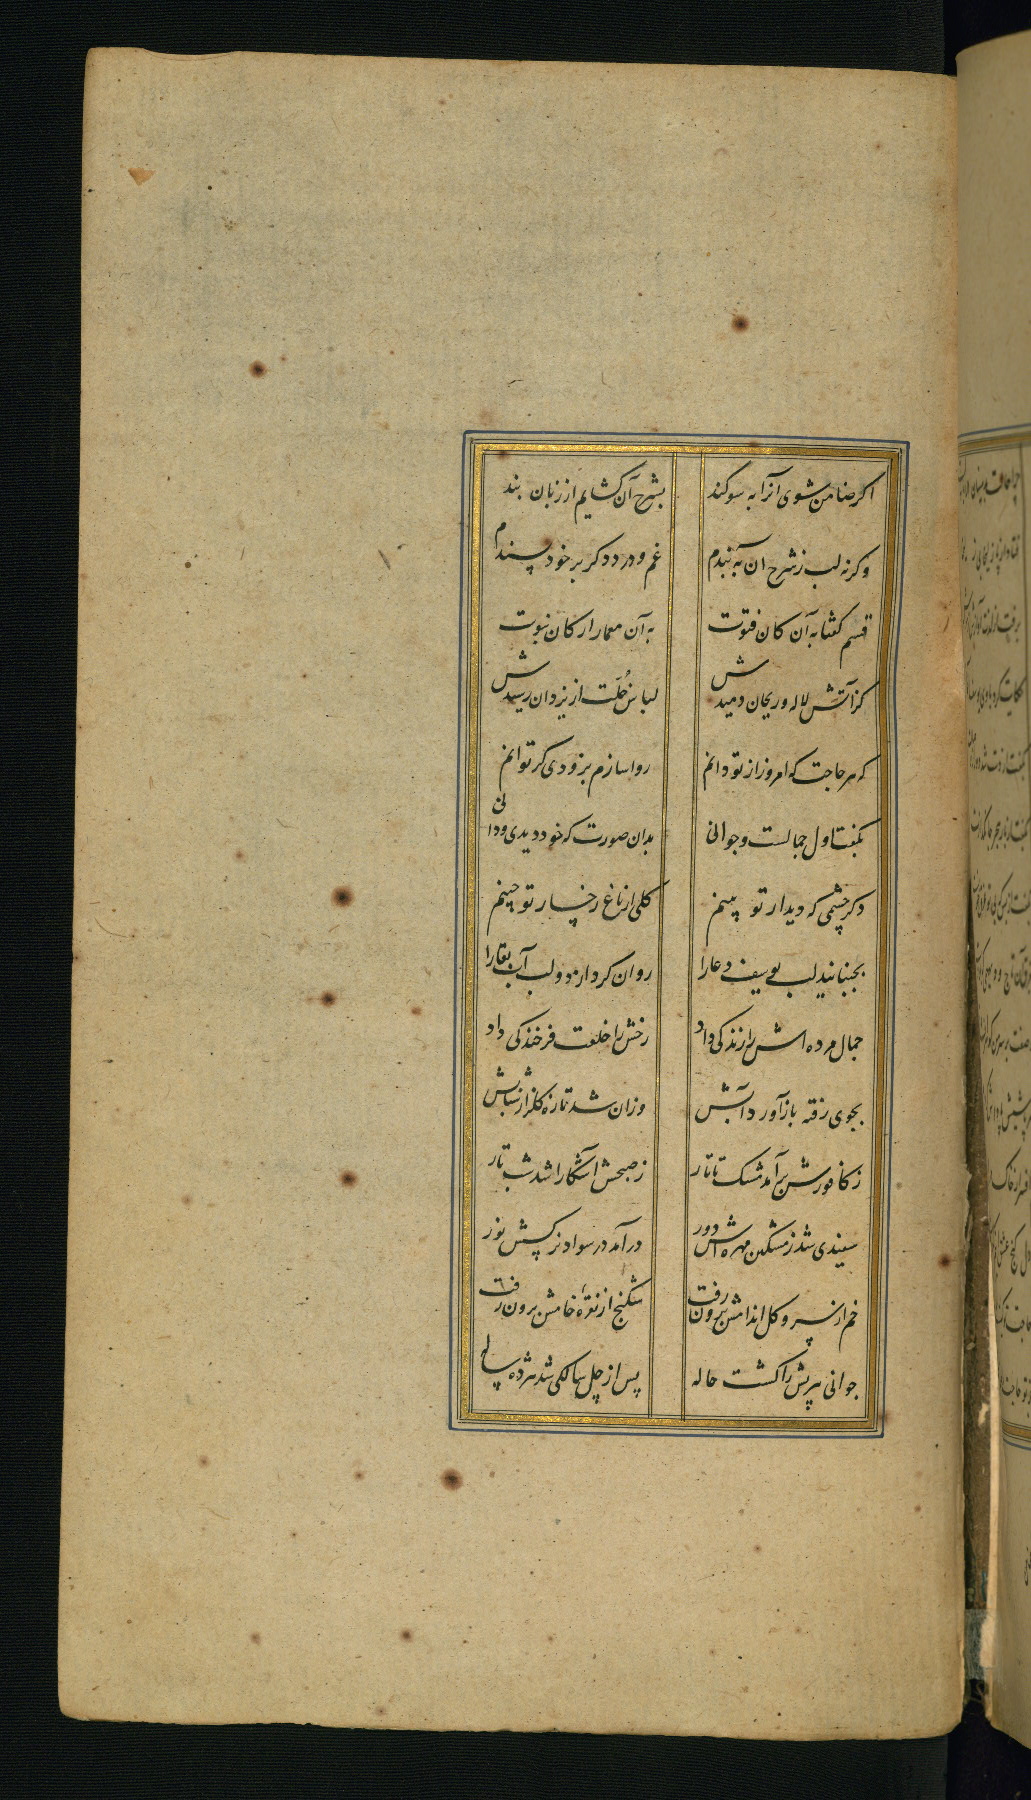 اکر ضامن شوی آنرا به سوکند بشرح آن کشایم از زبان بند
وکرنه لب ز شرح ان به بندم غم و درد دکر بر خود پسندم
قسم کفتا به آن کان فتوت به آن معمار ارکان نبوت
کز آتش لاله و ریحان دمیدش لباس خُلّت از یزدان رسیدش
که هر حاجت که امروز از تو دانم روا سازم بزودی کر توانم
بکفت اول جمالست و جوانی بدان صورت که خود دیدی و دانی
دکر چشمی که دیدار تو بینم کلی از باغ رخسار تو چینم
بجنبانید لب یوسف دعا را روان کرد از دو لب آب بقا را
جمال مرده اش را زندکی داد رخش را خلعت فرخندکی داد
بجوی رفته باز آورد آبش وزان شد تازه کلزار شبابش
ز کافورش برآمد مشک تاتار ز صبحش آشکارا شد شب تار
سپیدی شد ز مشکین مهره اش دور درآمد در سواد نرکسش نور
خم از سرو کل اندامش برون رفت شکنج از نقرهٔ خامش برون رفت
جوانی پیریش را کشت حاله پس از چل سالکی شد هژده ساله